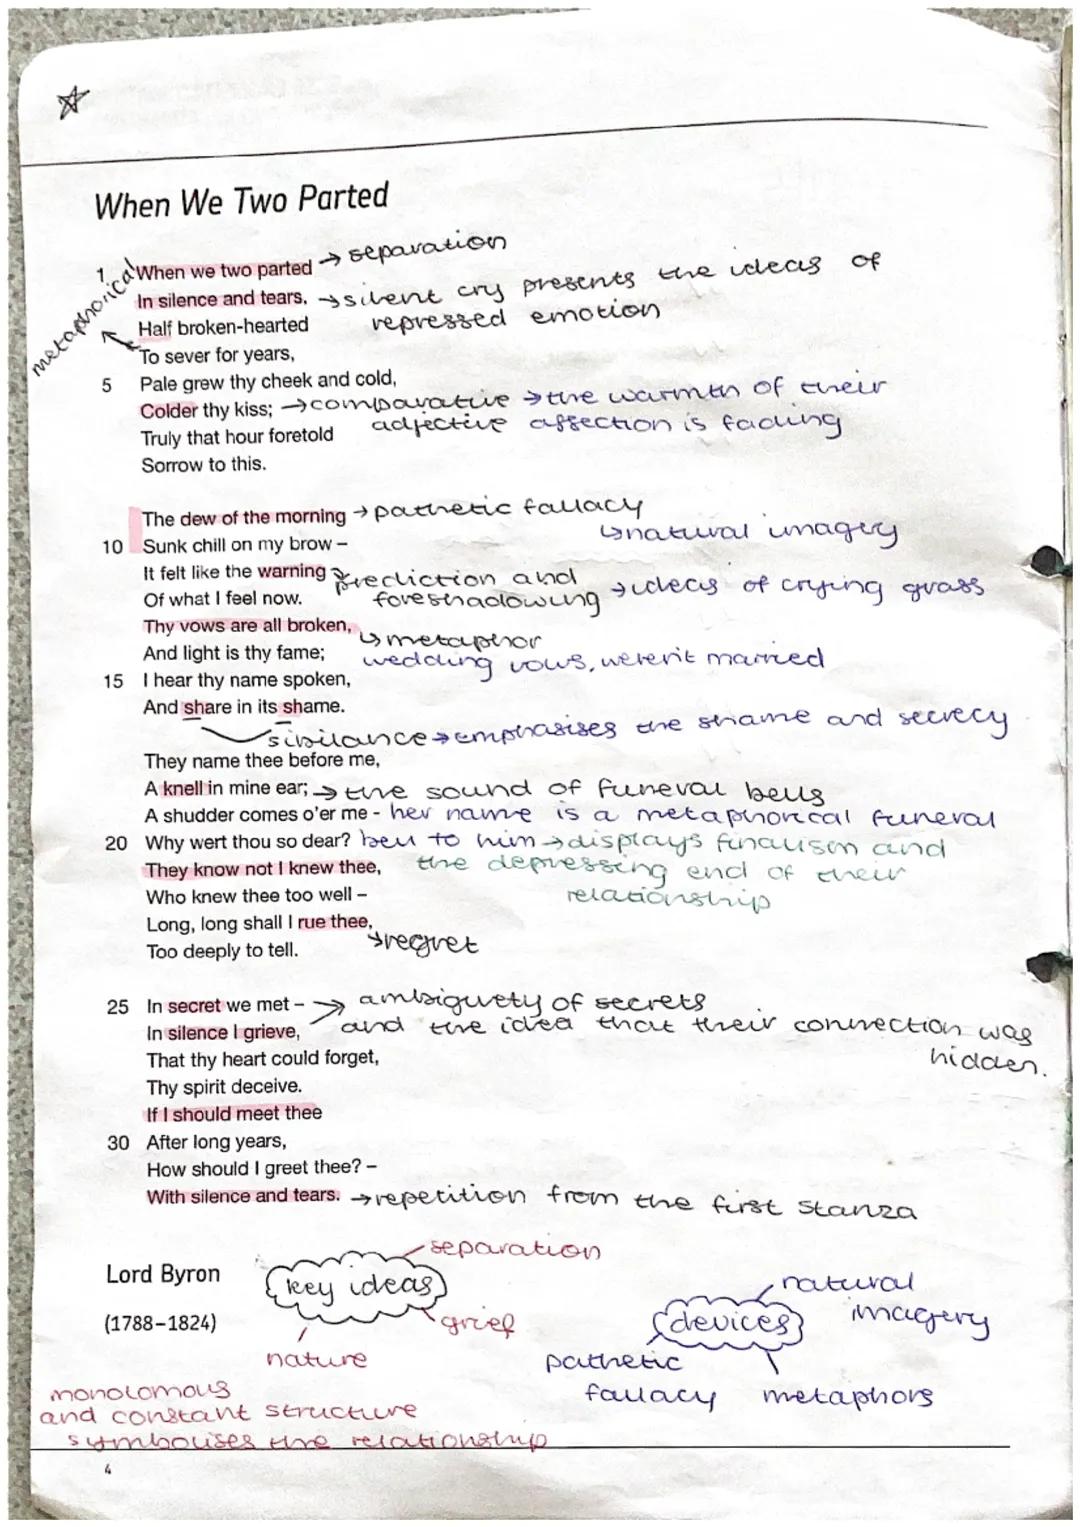 When We Two Parted
1 When we two parted → separation
metaphorical
In silence and tears, → silent cry presents the ideas of
Half broken-hearted repressed emotion
To sever for years,
5 Pale grew thy cheek and cold,
Colder thy kiss; → comparative → the warmth of their
adjective affection is fading
Truly that hour foretold
Sorrow to this.
The dew of the morning → pathetic fallacy
↳ natural imagery
10 Sunk chill on my brow –
It felt like the warning → prediction and
foreshadowing → ideas of crying grass
Of what I feel now.
Thy vows are all broken, ↳ metaphor
And light is thy fame; wedding vows, weren't married
15 I hear thy name spoken,
And share in its shame.
sibilance → emphasises the shame and secrecy
They name thee before me,
A knell in mine ear; → the sound of funeral bells
A shudder comes o'er me - her name is a metaphorical funeral
20 Why wert thou so dear? bell to him → displays finalism and
They know not I knew thee, the depressing end of their
Who knew thee too well – relationship
Long, long shall I rue thee,
Too deeply to tell. → regret
25 In secret we met – → ambiguety of secrets
In silence I grieve, and the idea that their connection was
hidden.
That thy heart could forget,
Thy spirit deceive.
If I should meet thee
30 After long years,
How should I greet thee? –
With silence and tears. → repetition from the first stanza
Lord Byron
(1788–1824)
key ideas
separation
grief
nature
devices
natural
imagery
pathetic
fallacy
metaphors
monolomous
and constant structure
symbolises the relationship
4